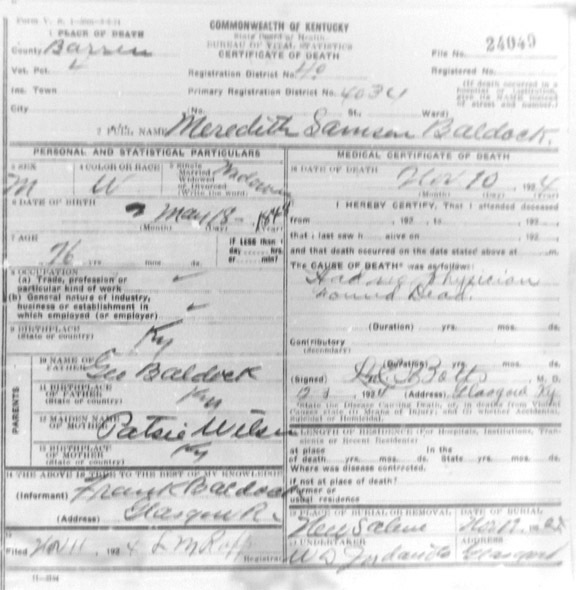 COMMONWEALTH OF KENTUCKY
State Board of Health
BUREAU OF VITAL STATISTICS
CERTIFICATE OF DEATH
1 PLACE OF DEATH
County Barren
File No. 24049
Vot. Pct. 4
Registration District No. 40
Registered No.
Inc. Town
Primary Registration District No. 4034
(If death occurred in a hospital or institution, give its NAME instead of street and number.)
City (No. St., Ward)
2 FULL NAME Meredith Samson Baldock.
PERSONAL AND STATISTICAL PARTICULARS
MEDICAL CERTIFICATE OF DEATH
3 SEX M
4 COLOR OR RACE W
5 Single Married Widowed or Divorced (Write the word)
16 DATE OF DEATH Nov 10, 1924
(Month) (Day) (Year)
6 DATE OF BIRTH May 18
(Month) (Day) (Year)
I HEREBY CERTIFY, That I attended deceased
from 192 , to 192 ,
that I last saw h alive on 192 ,
and that death occurred on the date stated above at m.
7 AGE 76 yrs. mos. ds.
If LESS than 1 day hrs. or min.?
The CAUSE OF DEATH* was as follows:
Had no Physician
Found Dead.
8 OCCUPATION
(a) Trade, profession or particular kind of work
(b) General nature of industry, business or establishment in which employed (or employer)
(Duration) yrs. mos. ds.
Contributory
(Secondary)
9 BIRTHPLACE
(State or country) Ky
(Duration) yrs. mos. ds.
PARENTS
10 NAME OF FATHER Geo Baldock
(Signed) Botts M. D.
1924 (Address) Glasgow Ky.
11 BIRTHPLACE OF FATHER
(State or country) Ky
12 MAIDEN NAME OF MOTHER Patsie Wilson
LENGTH OF RESIDENCE (For Hospitals, Institutions, Transients or Recent Residents)
13 BIRTHPLACE OF MOTHER
(State or country) Ky
At place of death yrs. mos. ds. In the State yrs. mos. ds.
Where was disease contracted,
if not at place of death?
Former or usual residence
14 THE ABOVE IS TRUE TO THE BEST OF MY KNOWLEDGE
(Informant) Frank Baldock
(Address) Glasgow
19 PLACE OF BURIAL OR REMOVAL DATE OF BURIAL
New Salem
Filed Nov 11 1924
Registrar
UNDERTAKER
ADDRESS
Glasgow